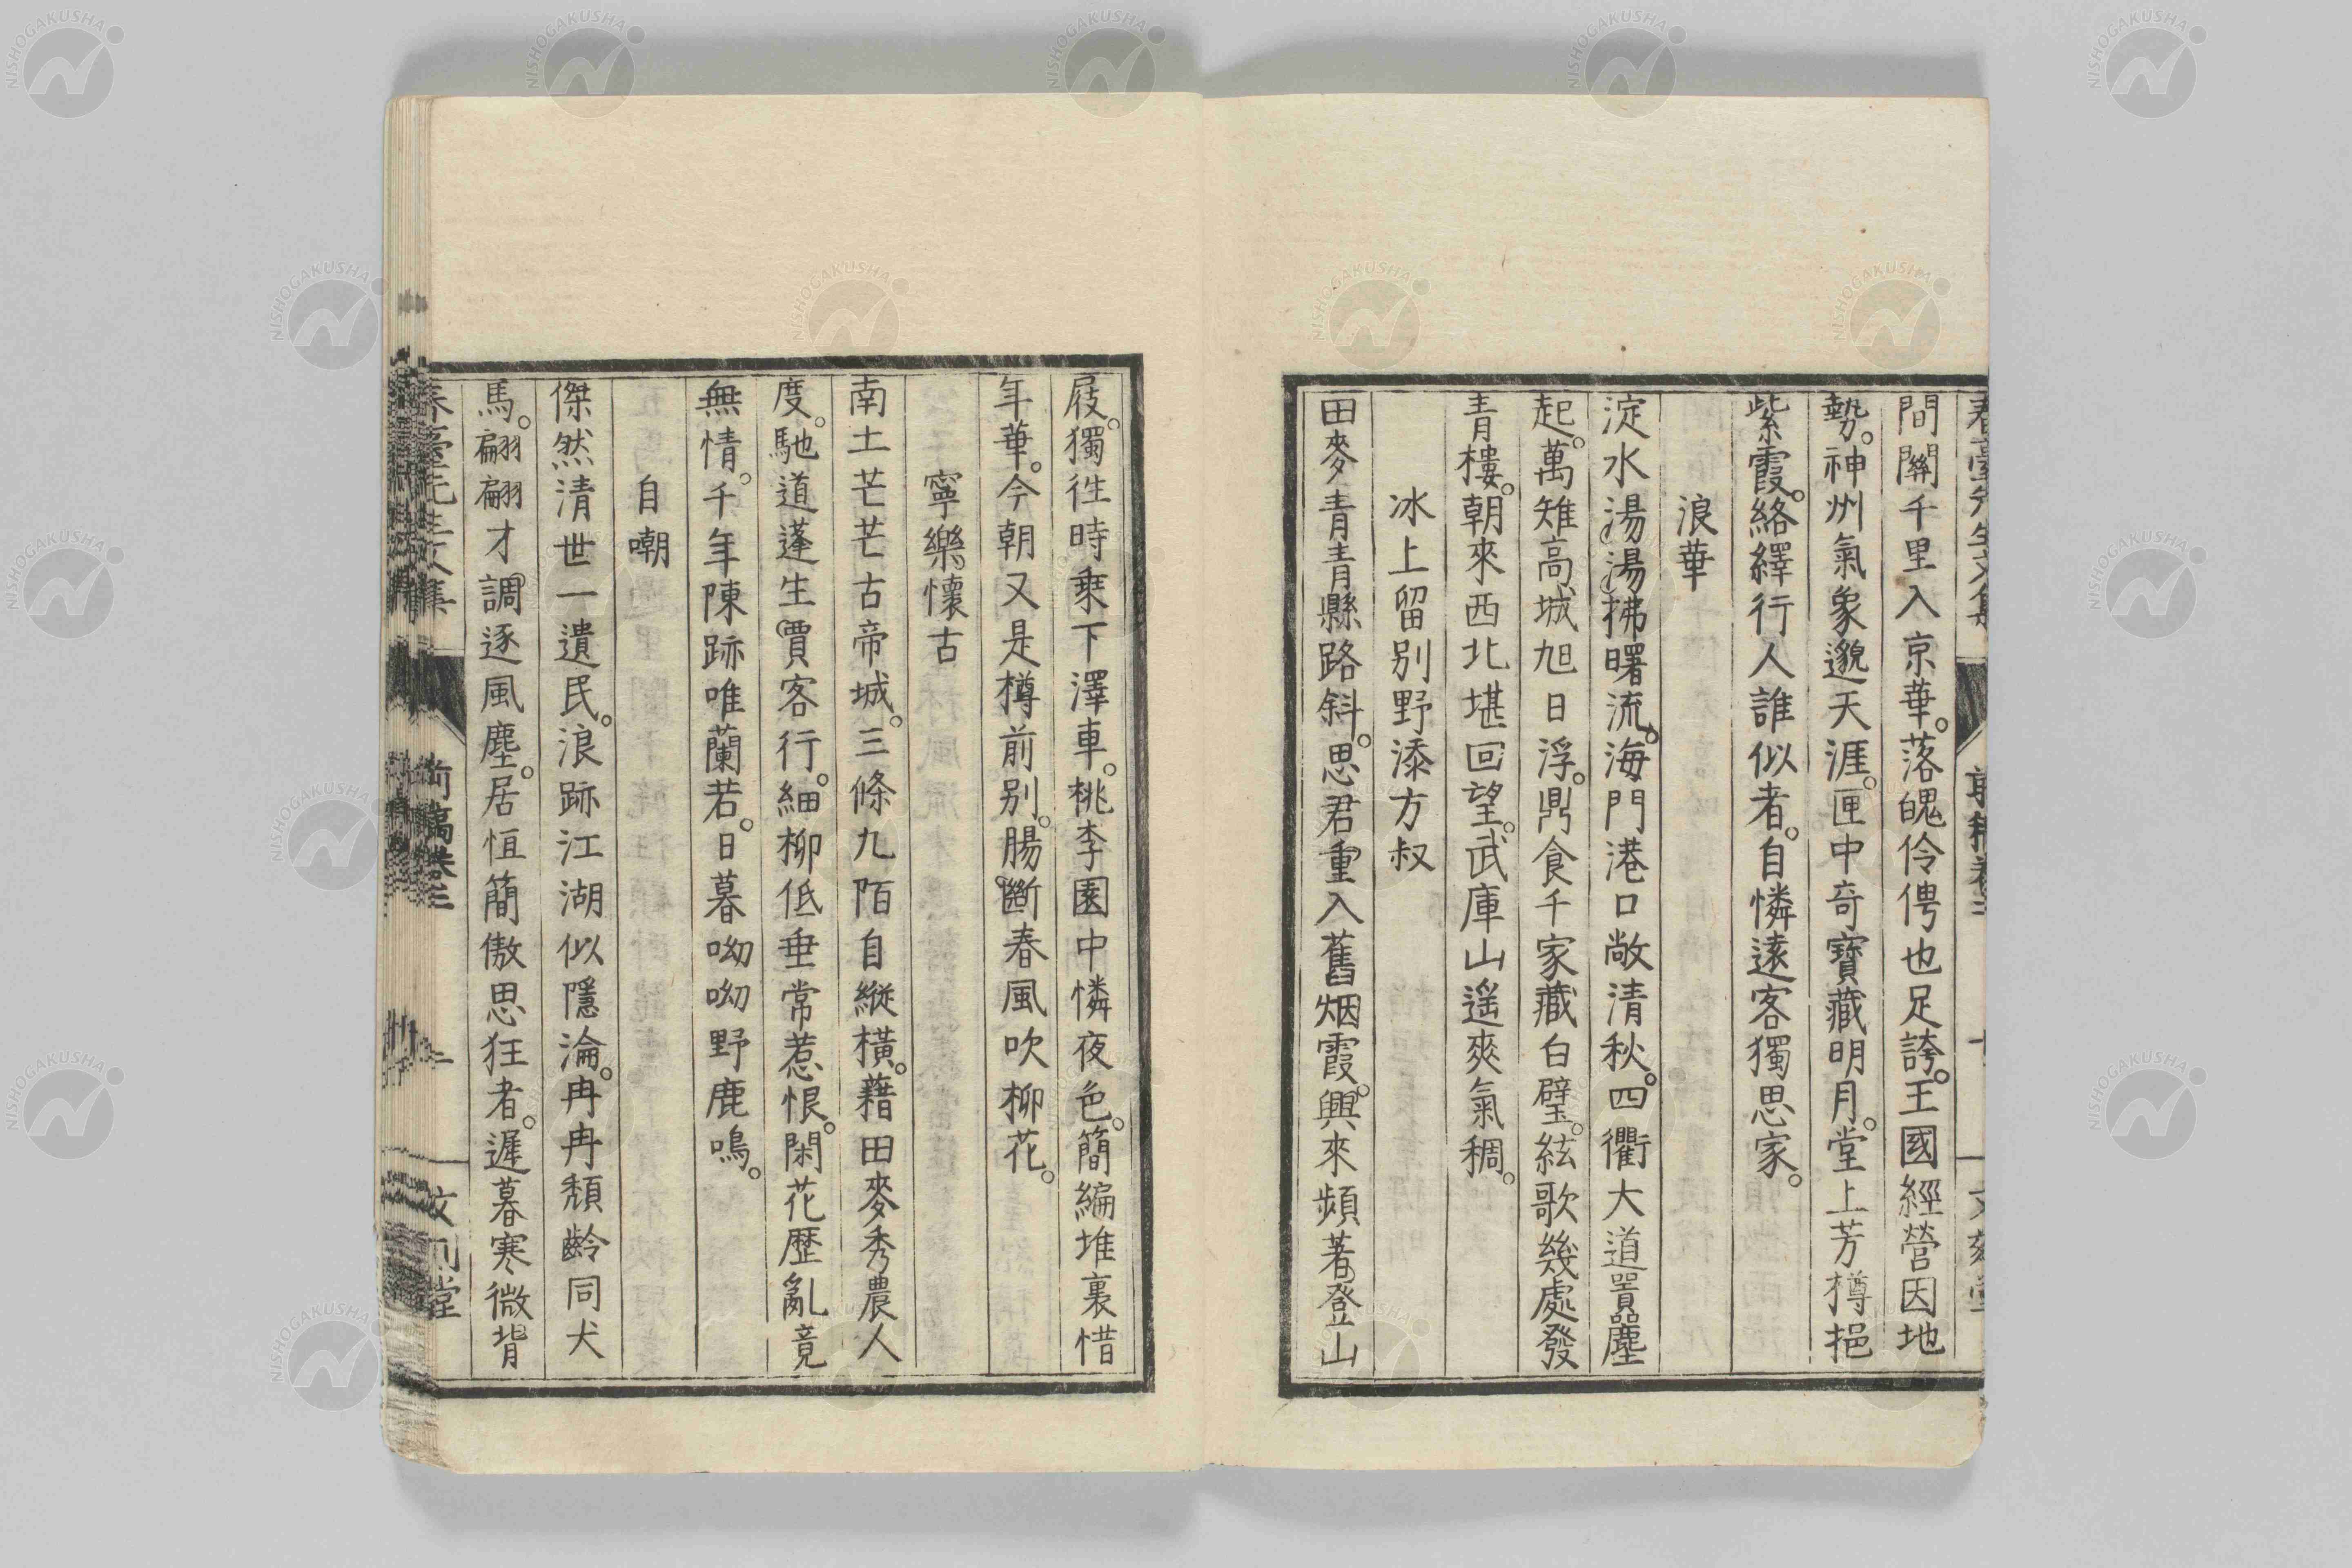 間關千里入京華。落魄伶俜也足誇。王國經營因地
勢。神州氣象邈天涯。匣中奇寶藏明月。堂上芳樽挹
紫霞。絡繹行人誰似者。自憐遠客獨思家。
浪華
淀水湯湯拂曙流。海門港口敞清秋。四衢大道囂塵
起。萬雉高城旭日浮。鼎食千家藏白璧。絃歌幾處發
青樓。朝來西北堪回望。武庫山遙爽氣稠。
冰上留別野漆方叔
田麥青青縣路斜。思君重入舊烟霞。興來頻著登山
屐。獨往時乘下澤車。桃李園中憐夜色。簡編堆裏惜
年華。今朝又是樽前別。腸斷春風吹柳花。
寧樂懷古
南土芒芒古帝城。三條九陌自縱橫。藉田麥秀農人
度。馳道蓬生賈客行。細柳低垂常惹恨。閑花歷亂竟
無情。千年陳跡唯蘭若。日暮呦呦野鹿鳴。
自嘲
傑然清世一遺民。浪跡江湖似隱淪。冉冉頹齡同犬
馬。翩翩才調逐風塵。居恒簡傲思狂者。遲暮寒微背
NISHOGAKUSHA